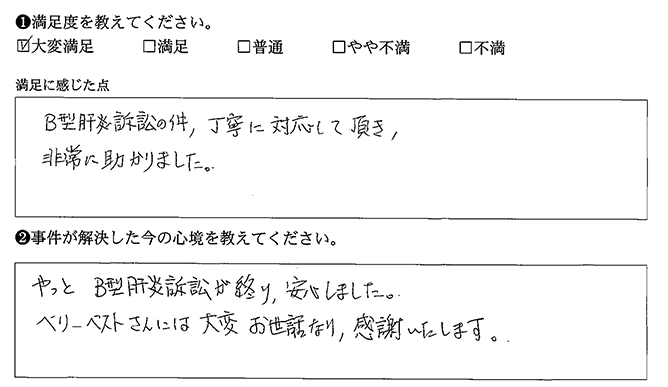 ❶満足度を教えてください。
☑大変満足 □満足 □普通 □やや不満 □不満
満足に感じた点
B型肝炎訴訟の件,丁寧に対応して頂き,
非常に助かりました。
❷事件が解決した今の心境を教えてください。
やっと B型肝炎訴訟が終り,安心しました。
ベリーベストさんには 大変 お世話なり,感謝いたします。